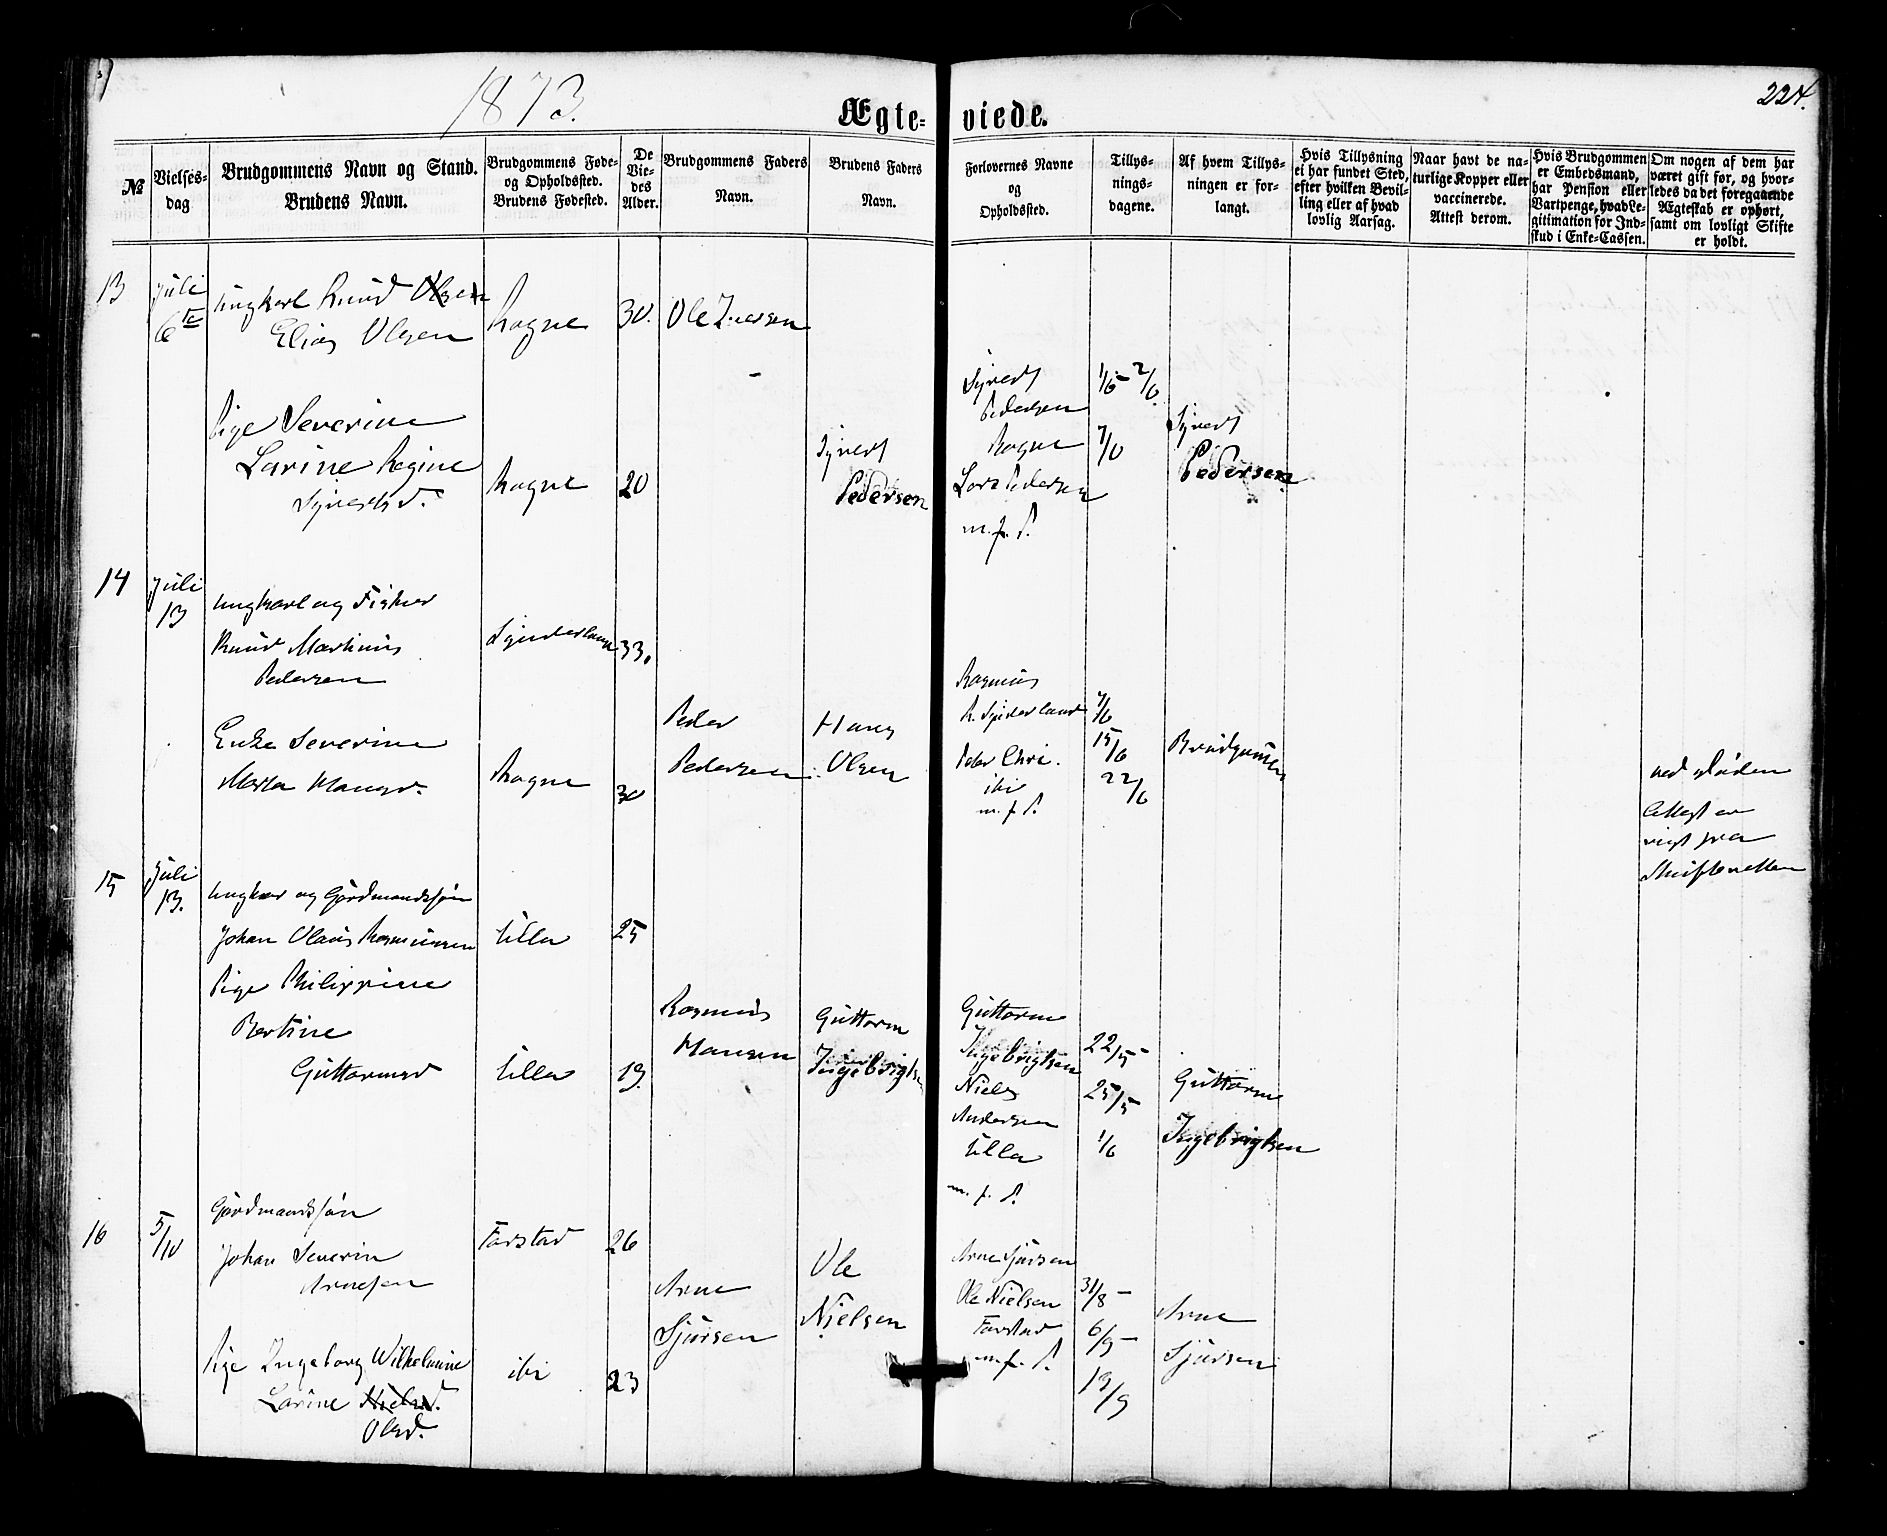 1873.
Ægte-viede.
224.
№
Vielses-
dag
Brudgommens Navn og Stand.
Brudens Navn.
Brudgommens Føde-
og Opholdssted.
Brudens Fødested.
De
Vie-
des
Alder.
Brudgommens Faders
Navn.
Brudens Faders
Navn.
Forlovernes Navne
og
Opholdssted.
Tillys-
nings-
dagene.
Af hvem Tillys-
ningen er for-
langt.
Hvis Tillysning
ei har fundet Sted,
efter hvilken Bevil-
ling eller af hvad
lovlig Aarsag.
Naar havt de na-
turlige Kopper eller
vaccinerede.
Attest derom.
Hvis Brudgommen
er Embedsmand,
har Pension eller
Vartpenge, hvad Le-
gitimation for Ind-
skud i Enke-Cassen.
Om nogen af dem har
været gift før, og hvor-
ledes da det foregaaende
Ægteskab er ophørt,
samt om lovligt Skifte
er holdt.
13
Juli
6te
Ungkarl Knud Olsen
Elias Olsen
Rogne
30.
Ole Iversen
Pige Severine
Larine Regine
Syvertsd.
Rogne
20
Syvert
Pedersen
Syvert
Pedersen
Rogne
Lars Pedersen
m. f. P.
1/6 - 2/6.
7/6
Syvert
Pedersen
14
Juli
13
Ungkarl og Fisker
Knud Martinus
Pedersen
Synderland
33.
Enke Severine
Marta Hansd.
Rogne
30
Peder
Pedersen
Hans
Olsen
Rasmus
R. Synderland
Peder Chri.
ibi
m. f. P.
7/6
15/6
22/6
Brudgommen
ved Døden
Attest er
vist fra
Skifteretten
15
Juli
13.
Ungkar og Gårdmandssøn
Johan Olaus Rasmussen
Ulla
25
Pige Philippine
Bertine
Guttormsd
Ulla
19.
Rasmus
Hansen
Guttorm
Ingebrigtsen
Guttorm
Ingebrigtsen
Niels
Andersen
Ulla
m. f. P.
22/5 -
25/5
1/6
Guttorm
Ingebrigtsen
16
5/10
Gårdmandssøn
Johan Severin
Arnesen
Farstad
26
Pige Ingeborg Wilhelmine
Larine Nielsd.
Olsd.
ibi
23
Arne
Sjursen
Ole
Nielsen
Arne Sjursen
Ole Nielsen
Farstad
m. f. P.
31/8 -
6/9 -
13/9
Arne
Sjursen